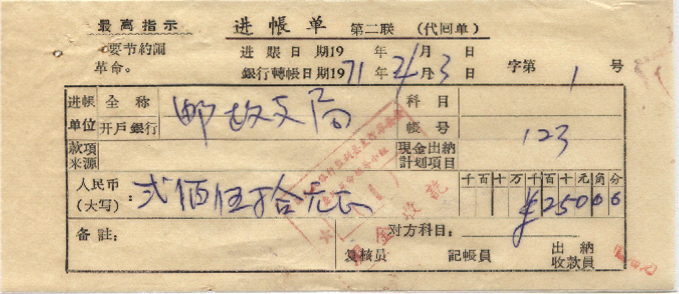 最高指示
要节约闹
革命。
进帐单 第二联 (代回单)
进账日期19 年 月 日
銀行轉帳日期1971年2月3日 字第1号
进帐单位 全称 邮政支局 科目
开戶銀行 帳号 123
款項来源 現金出納計划項目
千百十万千百十元角分
人民币(大写): 弍佰伍拾元正 ¥25000
备註: 对方科目:
复核员 記帳員 出納收款員